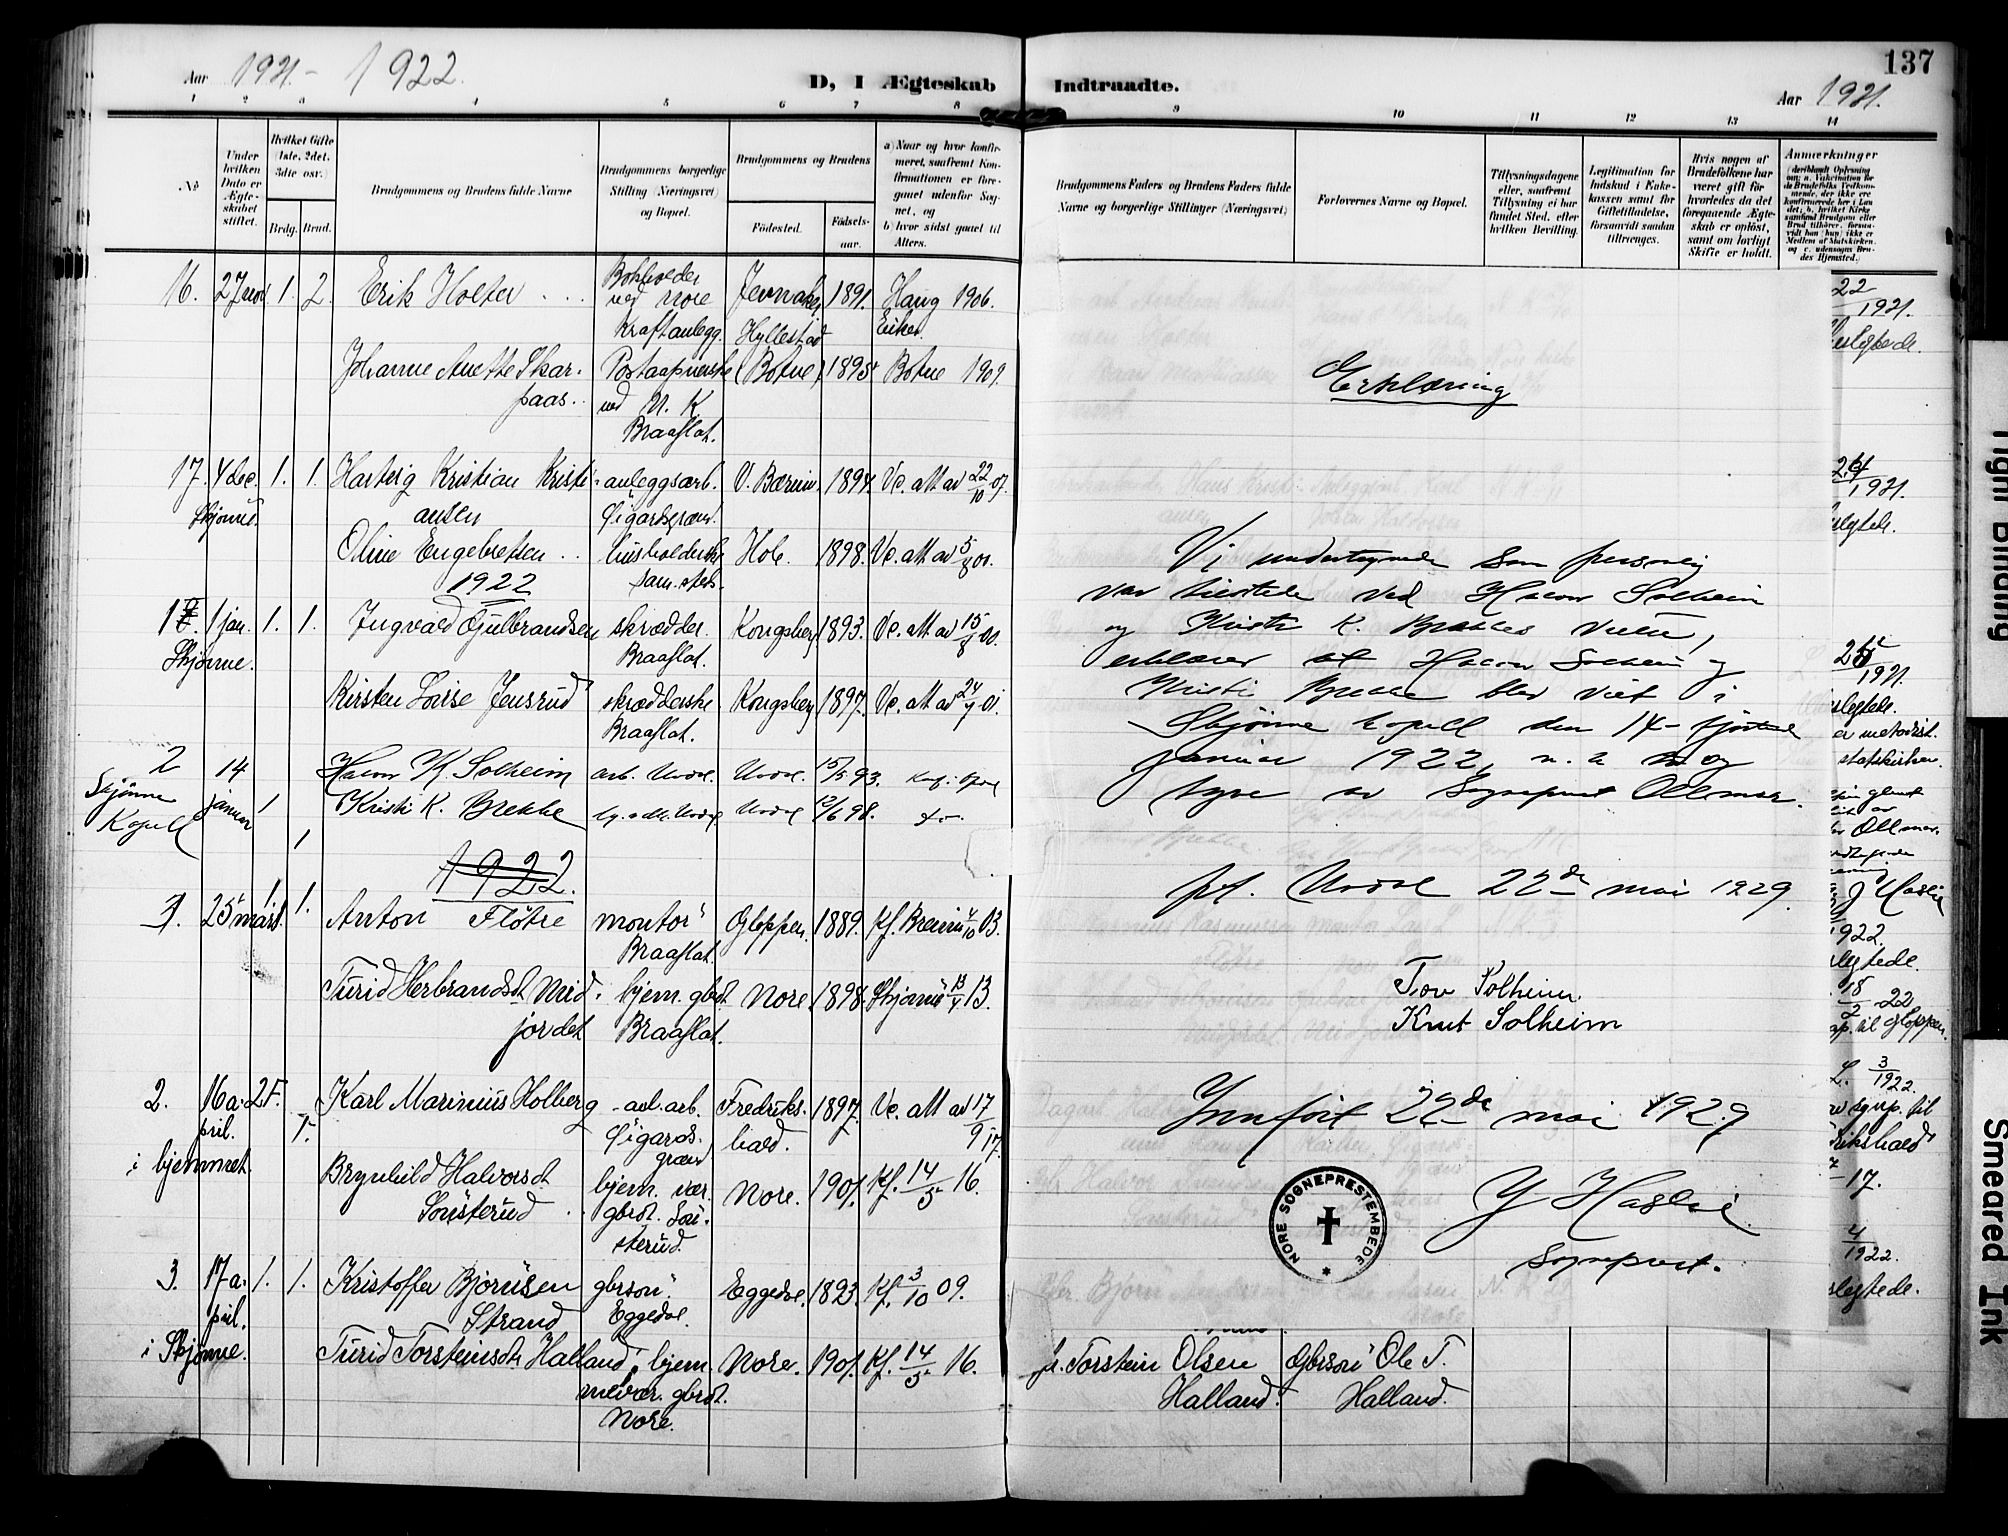 Aar 1921.- 1922.
D, I Ægteskab
1 2 3 4 5 6 7 8
No
Under hvilken Dato er Ægteskabet stiftet.
Hvilket Gifte (1ste, 2det, 3die osv.)
Brdg. Brud.
Brudgommens og Brudens fulde Navne
Brudgommens borgerlige Stilling (Næringsvei) og Bopæl.
Brudgommens og Brudens
Fødested. Fødselsaar.
a) Naar og hvor konfirmeret, saafremt Konfirmationen er foregaaet udenfor Sognet, og
b) hvor sidst gaaet til Alters.
16. 27 nov 1. 2. Erik Holter Bokholder ved Nore Kraftanlegg. Jevnaker 1891. Haug 1906. Eiker
Johanne Anette Skarpaas. Postaapnerske ved N. K. Braaflat. Hyllestad (Botne) 1895 Botne 1909.
17. 4 dec. Skjønne. 1. 1. Hartvig Kristian Kristiansen anleggsarb. V. Bærum. 1894. Vc. att av 22/10 07.
Oline Engebretsen husholderske sam. sted. Hole. 1898. Vc. att av 5/8 01.
1922
1 jan. Skjønne. 1. 1. Ingvald Gulbrandsen skrædder. Braaflat. Kongsberg 1893. Vc. att av 15/8 01.
Kirsten Lovise Jensrud skrædderske Braaflat. Kongsberg 1897. Vc. att av 24/9 01.
2 Skjønne Kapell 14 januar 1 Halvor K. Solheim arb. Uvdal. Uvdal. 93.
1 Kristi K. Brekke Uvdal 98.
1922.
25 mars. 1. 1. Anton Fløtre montør Braaflat. Gloppen. 1889. Kf. 4/10 03.
Turid Herbrandsdt Midjordet hjem. gbrdt. Braaflat. Nore. 1898. Skjønne 13/4 13.
2. 16 april. i hjemmet. 2 F. F. Karl Marinius Holberg anl. arb. Øigardsgrænd Fredrikshald. 1897. Vc. att av 17/9 17.
Brynhild Halvorsdt Sønsterud hjem. vær. gbrdt. Sønsterud. Nore. 1901. Kf. 14/5 16.
3. 17 april. i Skjønne. 1. 1. Kristoffer Bjørnsen Strand gbrsøn Eggedal. Eggedal. 1893. Kf. 3/10 09.
Turid Torsteinsdt Halland hjemmevær. gbrdt. Nore. Nore. 1901. Kf. 14/5 16.
137
Indtraadte.
Aar 1921.
9 10 11 12 13 14
Brudgommens Faders og Brudens Faders fulde Navne og borgerlige Stillinger (Næringsvei)
Forlovernes Navne og Bopæl.
Tillysningsdagene eller, saafremt Tillysning ei har fundet Sted, efter hvilken Bevilling.
Legitimation for Indskud i Enkekassen samt for Giftetilladelse, forsaavidt saadan tiltrænges.
Hvis nogen af Brudefolkene har været gift før hvorledes da det foregaaende Ægteskab er opløst, samt om lovligt Skifte er holdt.
Anmerkninger
Erklæring
Vi undertegnede som personlig
var tilstede ved Halvor Solheim
og Kristi K. Brekkes vielse,
erklærer at Halvor Solheim og
Kristi Brekke blev viet i
Skjønne kapell den 14-fjortende
januar 1922, n. a. m og
tyve av Sogneprest Ollmar.
pt. Uvdal 22de mai 1929.
Tov Solheim.
Knut Solheim
Innført 22de mai 1929
Y Haslie
Sogneprest.
NORE SOGNEPRESTEMBEDE
Torstein Olsen Halland. Gbrsøn Ole T. Halland.
22/1921.
1921.
1921.
metodist.
statskirken.
Ollmar.
1922.
18/2 22
til Gloppen.
3/1922.
17.
4/1922.
Tight Binding
Smeared Ink